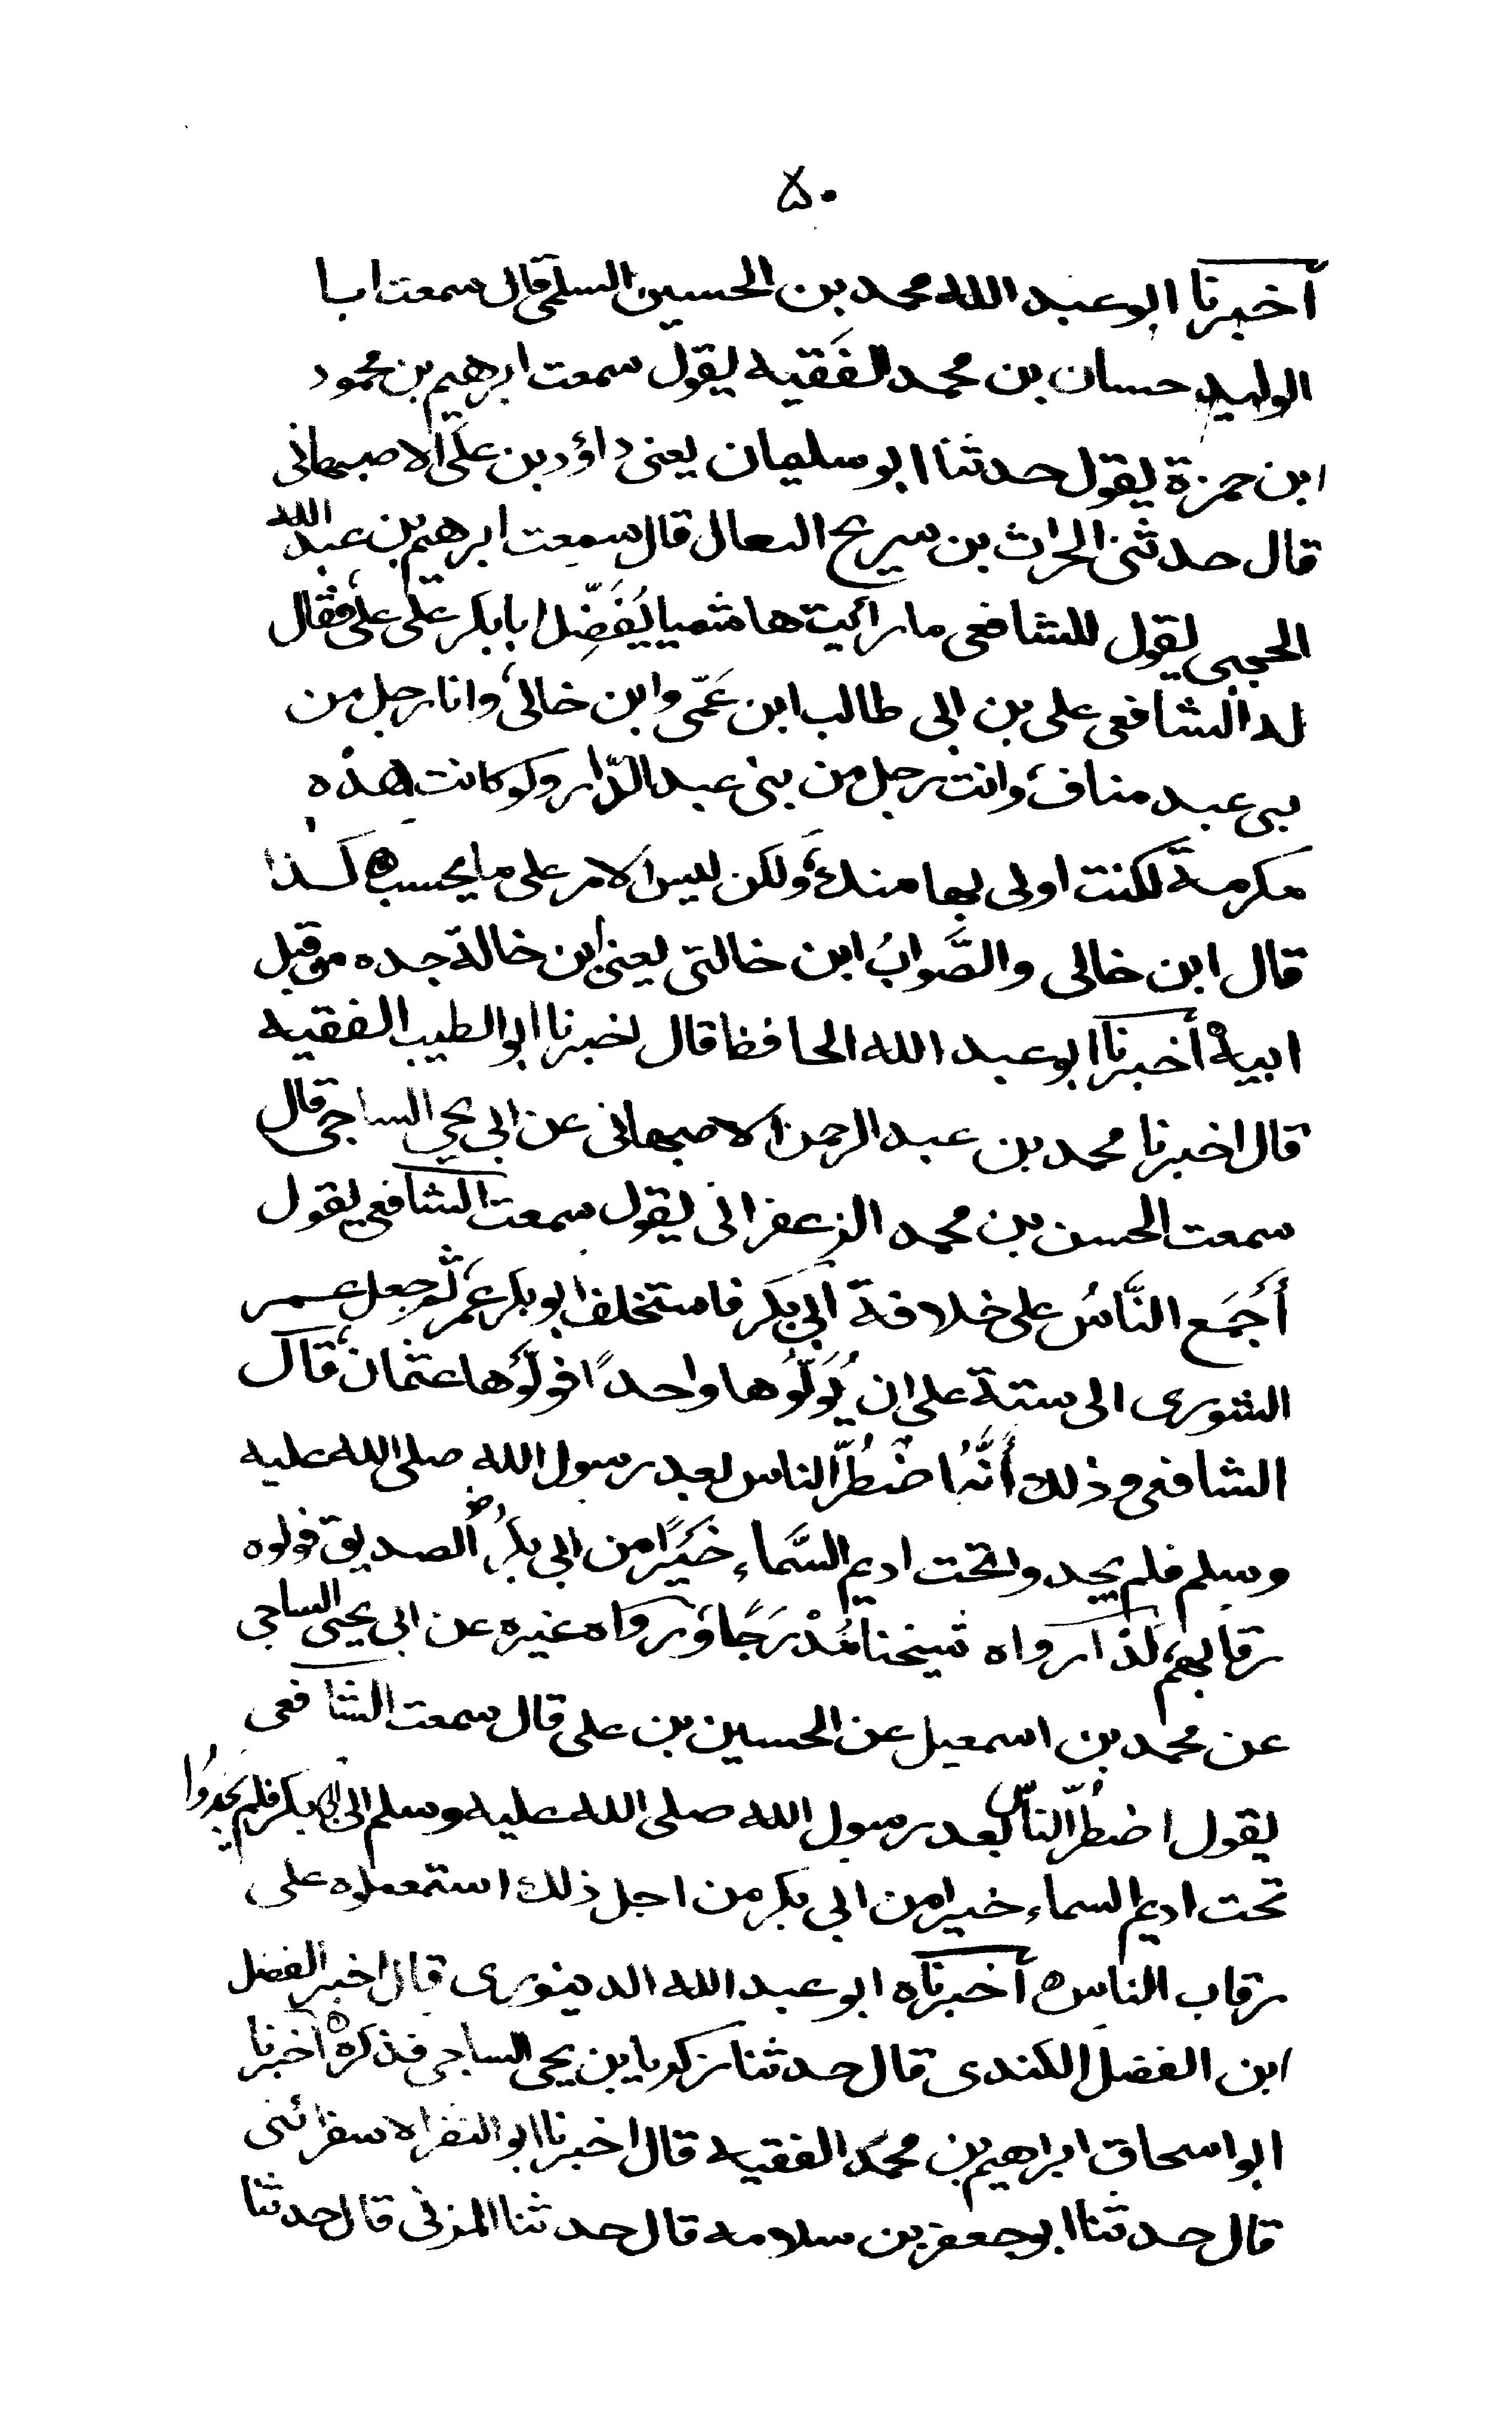 ۵۰
أخبرنا ابو عبد الله محمد بن الحسين السلمي قال سمعت ابا
الوليد حسان بن محمد الفَقيه يقول سمعت ابرهيم بن محمود
ابن حمزة يقول حدثنا ابو سليمان يعنى داؤد بن على الاصبهانى
قال حدثنى الحراث بن سريج النقال قال سمعت ابرهيم بن عبد الله
الحجبى يقول للشافعى ما رأيت هاشميا يُفَضِّل ابا بكر على على فقال
له الشافعى على بن ابى طالب ابن عَمّى وابن خالى، وانا رجل من
بنى عبد مناف، وانت رجل من بنى عبد الدّار ولو كانت هذه
مكرمةً لكنت اولى بها منك، ولكن ليس الامر على ما يحسب ه كذا
قال ابن خالى والصَّوابُ ابن خالتى يعنى ابن خالة جده من قبل
ابيه ه أخبرنا ابو عبد الله الحافظ قال اخبرنا ابو الطيب الفقيه
قال اخبرنا محمد بن عبد الرحمن الاصبهانى عن ابى يحيى الساجى قال
سمعت الحسن بن محمد الزعفرانى يقول سمعت الشافعى يقول
أَجْمَع النَّاسُ على خلافة ابى بكر فاستخلف ابو بكر عمر، ثم جعل عمر
الشورى الى ستة على ان يُوَلّوُها واحدًا فولَّوْها عثمان، قال
الشافعى وذلك أَنَّهُ اضْطُرَّ الناس بعد رسول الله صلى الله عليه
وسلم فلم يجدوا تحت اديم السَّماء خَيْرًا من ابى بكر رض الصديق فولوه
رقابهم، كذا رواه شيخنا مُدْرَجًا، ورواه غيره عن ابى يحيى الساجى
عن محمد بن اسمعيل عن الحسين بن على قال سمعت الشافعى
يقول اضطُرّ النّاس بعد رسول الله صلى الله عليه وسلم الى ابى بكر فلم يجدُوا
تحت اديم السماء خيرا من ابى بكر من اجل ذلك استعملوه على
رقاب الناس ه أخبرناه ابو عبد الله الدينورى قال اخبر الفضل
ابن الفضل الكندى قال حدثنا زكريا بن يحيى الساجى فذكره ه أخبرنا
ابو اسحاق ابراهيم بن محمد الفقيه قال اخبرنا ابو النضر الاسفرائنى
قال حدثنا ابو جعفر بن سلامه قال حدثنا المزنى قال حدثنا